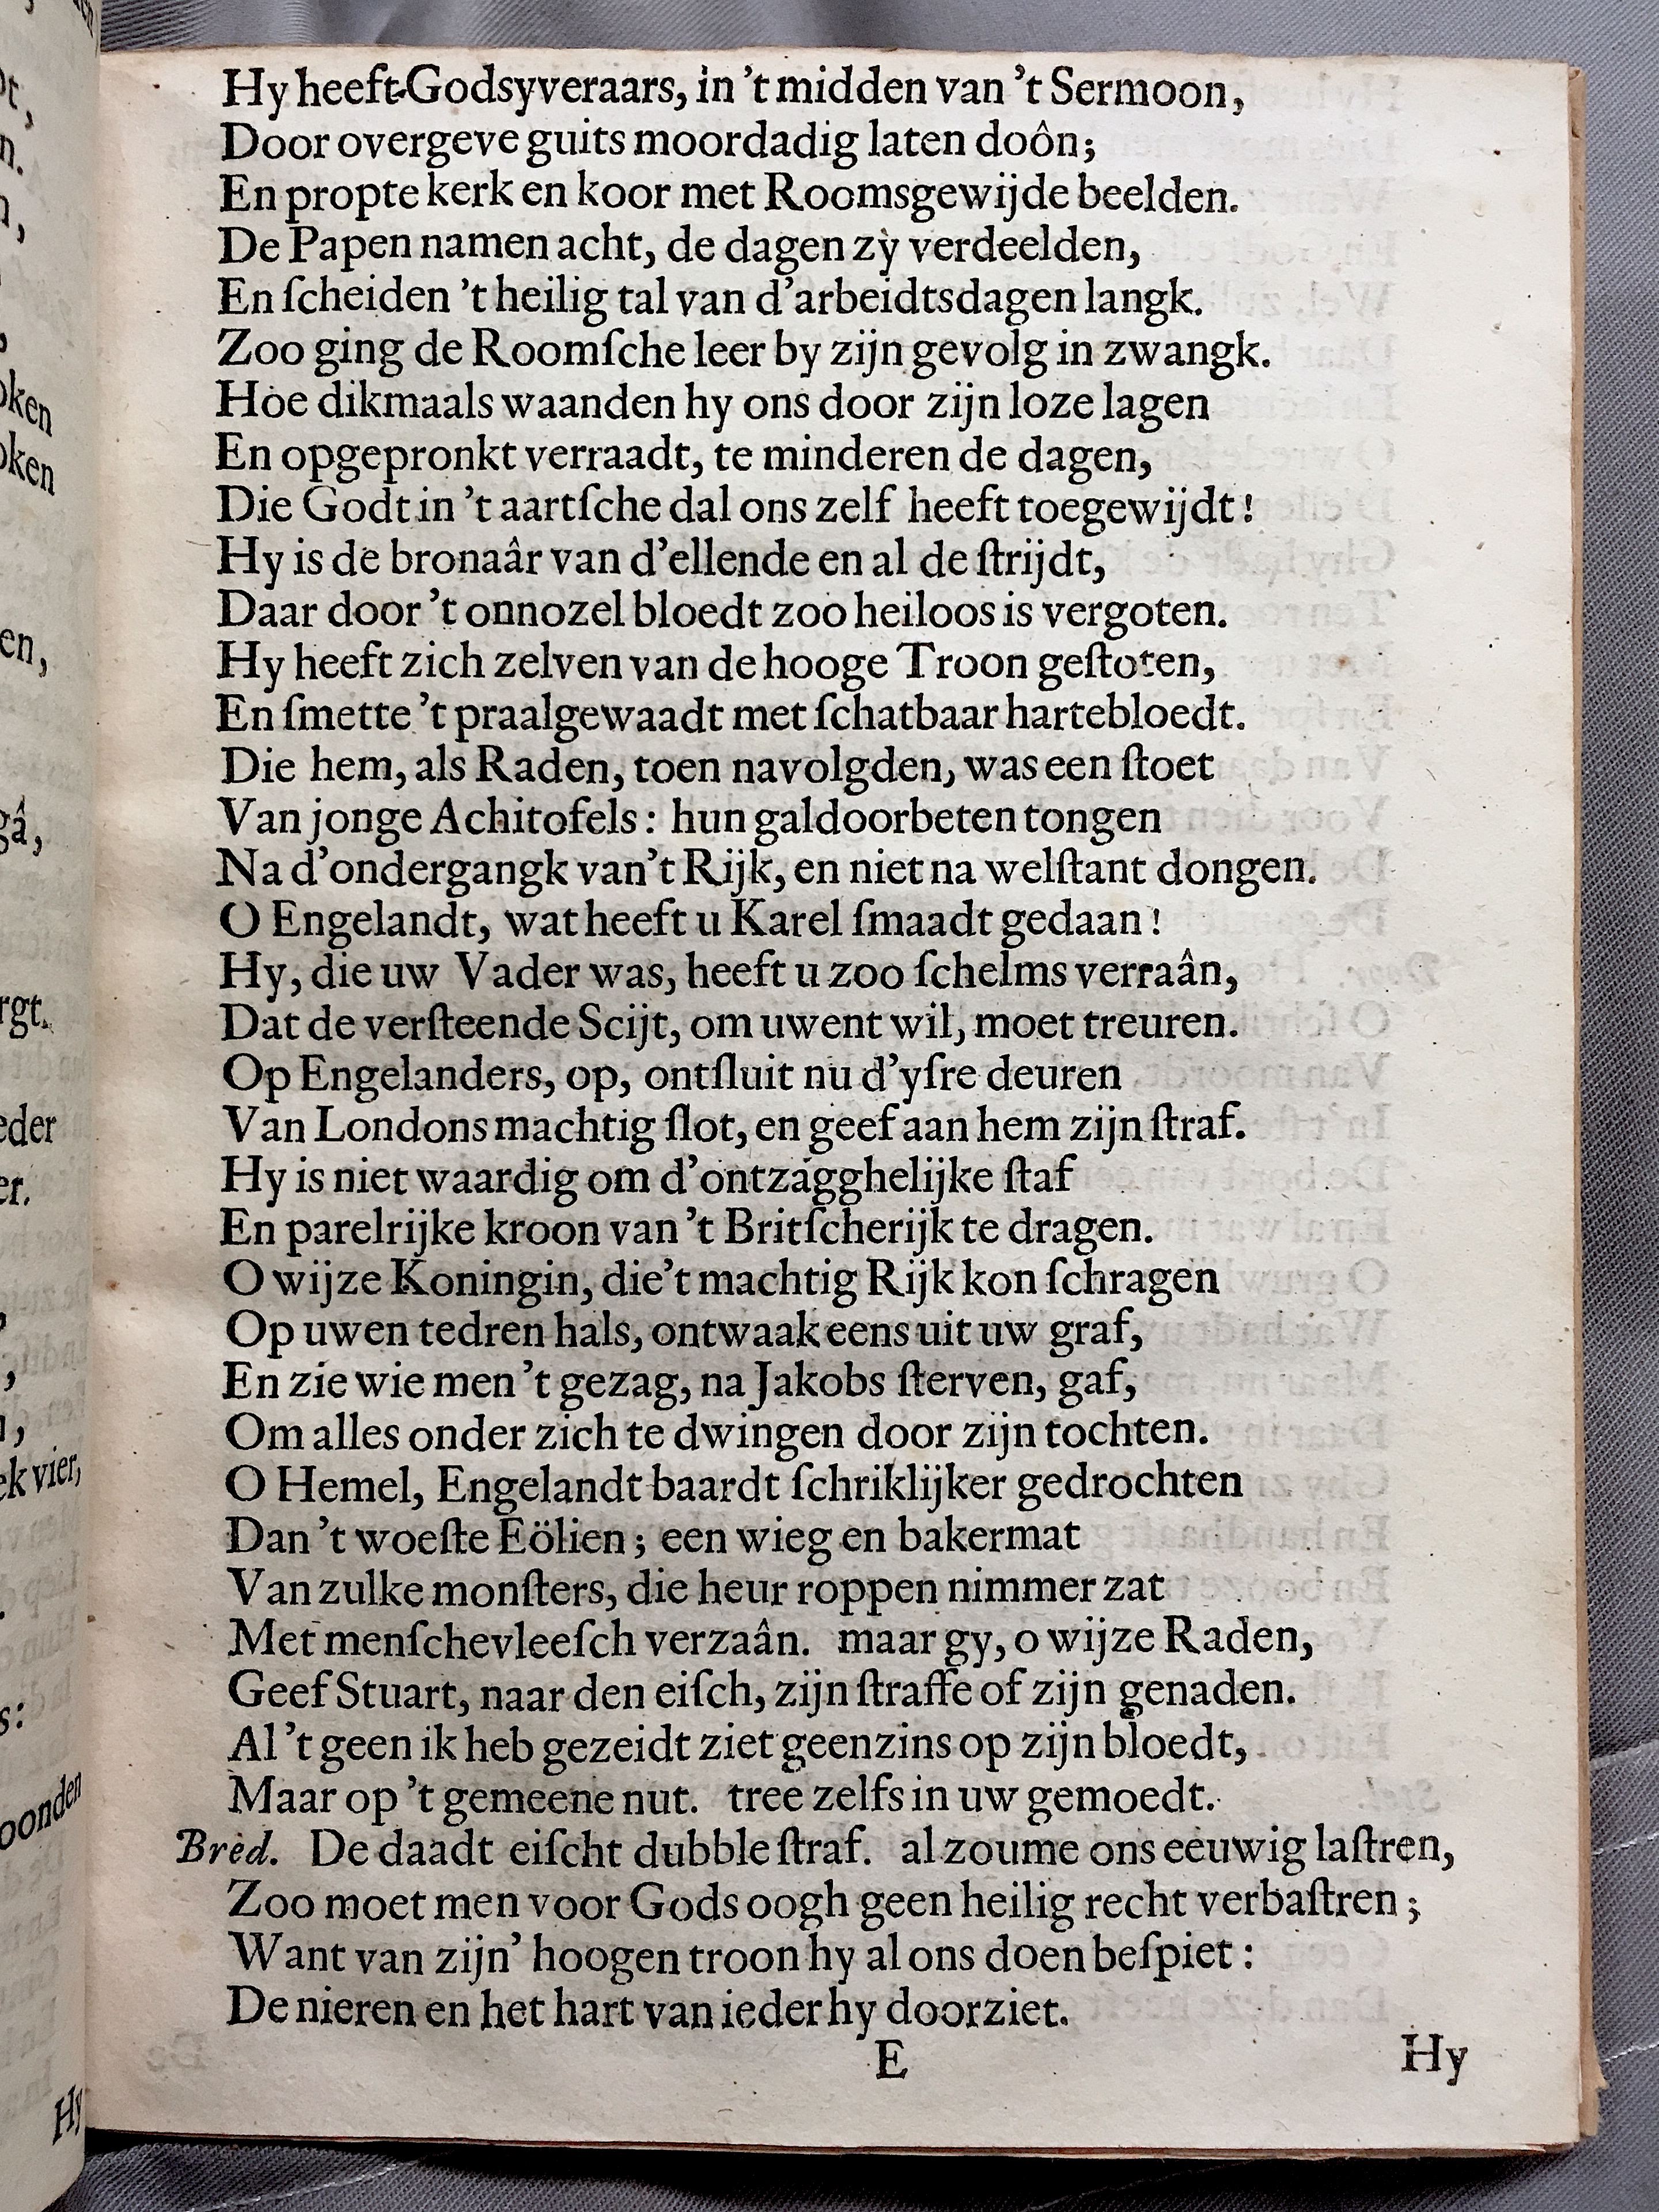 Hy heeft Godsyveraars, in 't midden van 't Sermoon,
Door overgeve guits moordadig laten doôn;
En propte kerk en koor met Roomsgewijde beelden.
De Papen namen acht, de dagen zy verdeelden,
En ſcheiden 't heilig tal van d'arbeidtsdagen langk.
Zoo ging de Roomſche leer by zijn gevolg in zwangk.
Hoe dikmaals waanden hy ons door zijn loze lagen
En opgepronkt verraadt, te minderen de dagen,
Die Godt in 't aartſche dal ons zelf heeft toegewijdt!
Hy is de bronaâr van d'ellende en al de ſtrijdt,
Daar door 't onnozel bloedt zoo heiloos is vergoten.
Hy heeft zich zelven van de hooge Troon geſtoten,
En ſmette 't praalgewaadt met ſchatbaar hartebloedt.
Die hem, als Raden, toen navolgden, was een ſtoet
Van jonge Achitofels: hun galdoorbeten tongen
Na d'ondergangk van't Rijk, en niet na welſtant dongen.
O Engelandt, wat heeft u Karel ſmaadt gedaan!
Hy, die uw Vader was, heeft u zoo ſchelms verraân,
Dat de verſteende Scijt, om uwent wil, moet treuren.
Op Engelanders, op, ontſluit nu d'yſre deuren
Van Londons machtig ſlot, en geef aan hem zijn ſtraf.
Hy is niet waardig om d'ontzagghelijke ſtaf
En parelrijke kroon van 't Britſcherijk te dragen.
O wijze Koningin, die't machtig Rijk kon ſchragen
Op uwen tedren hals, ontwaak eens uit uw graf,
En zie wie men 't gezag, na Jakobs ſterven, gaf,
Om alles onder zich te dwingen door zijn tochten.
O Hemel, Engelandt baardt ſchriklijker gedrochten
Dan 't woeſte Eölien; een wieg en bakermat
Van zulke monſters, die heur roppen nimmer zat
Met menſchevleeſch verzaân. maar gy, o wijze Raden,
Geef Stuart, naar den eiſch, zijn ſtraffe of zijn genaden.
Al 't geen ik heb gezeidt ziet geenzins op zijn bloedt,
Maar op 't gemeene nut. tree zelfs in uw gemoedt.
Bred. De daadt eiſcht dubble ſtraf. al zoume ons eeuwig laſtren,
Zoo moet men voor Gods oogh geen heilig recht verbaſtren;
Want van zijn' hoogen troon hy al ons doen beſpiet:
De nieren en het hart van ieder hy doorziet.
E Hy